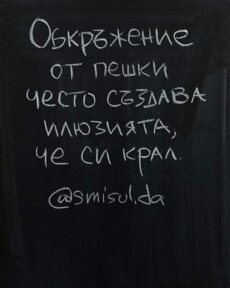 Обкръжение
от пешки
често създава
илюзията,
че си крал.
@smisul.da